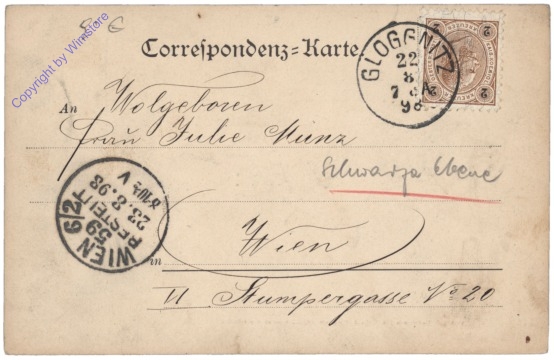 Copyright by Winstore
Correspondenz=Karte.
GLOGGNITZ
22
8
7
98
2
2
2
2
An Wolgeboren
Frau Julie Munz
Schwarza Ebene
WIEN 6/2
59
BESTELLT
23.8.98
8-10½ V
in Wien
VI Stumpergasse No 20